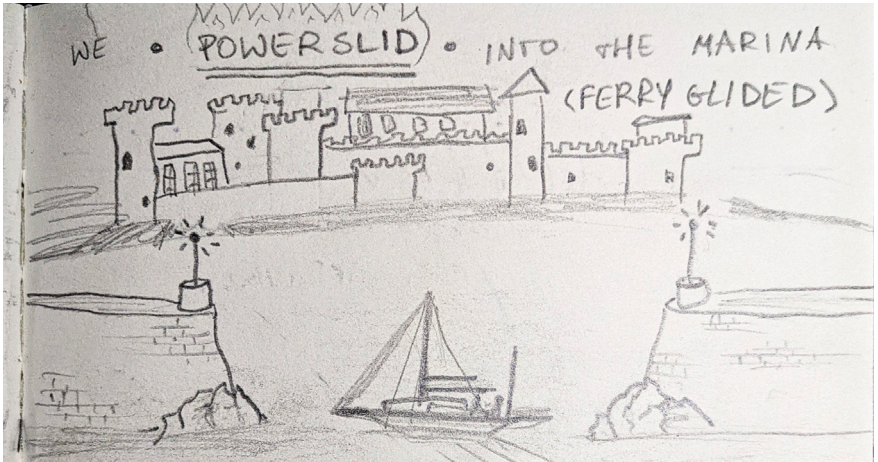 WE • (POWERSLID) • INTO THE MARINA
(FERRY GLIDED)